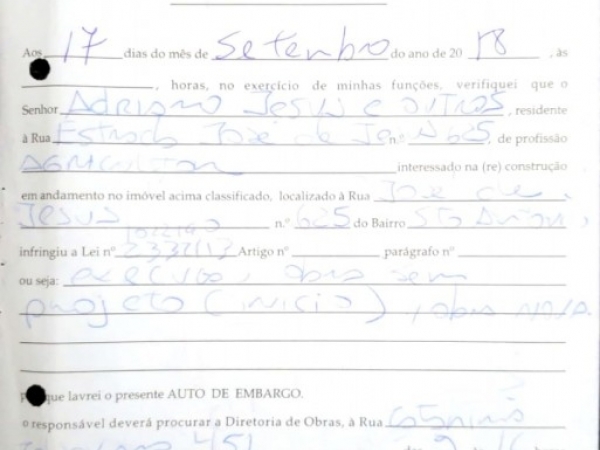 Aos 17 dias do mês de Setembro do ano de 20 18, às
, horas, no exercício de minhas funções, verifiquei que o
Senhor Adriano Jesus e outros, residente
à Rua Estrada José de Jesus n.º 625, de profissão
Agricultor interessado na (re) construção
em andamento no imóvel acima classificado, localizado à Rua José de
Jesus n.º 625 do Bairro Sto Anton,
infringiu a Lei nº 2332/13 Artigo nº parágrafo nº
ou seja: execução, obra sem
projeto (início), obra nova
que lavrei o presente AUTO DE EMBARGO.
o responsável deverá procurar a Diretoria de Obras, à Rua
451